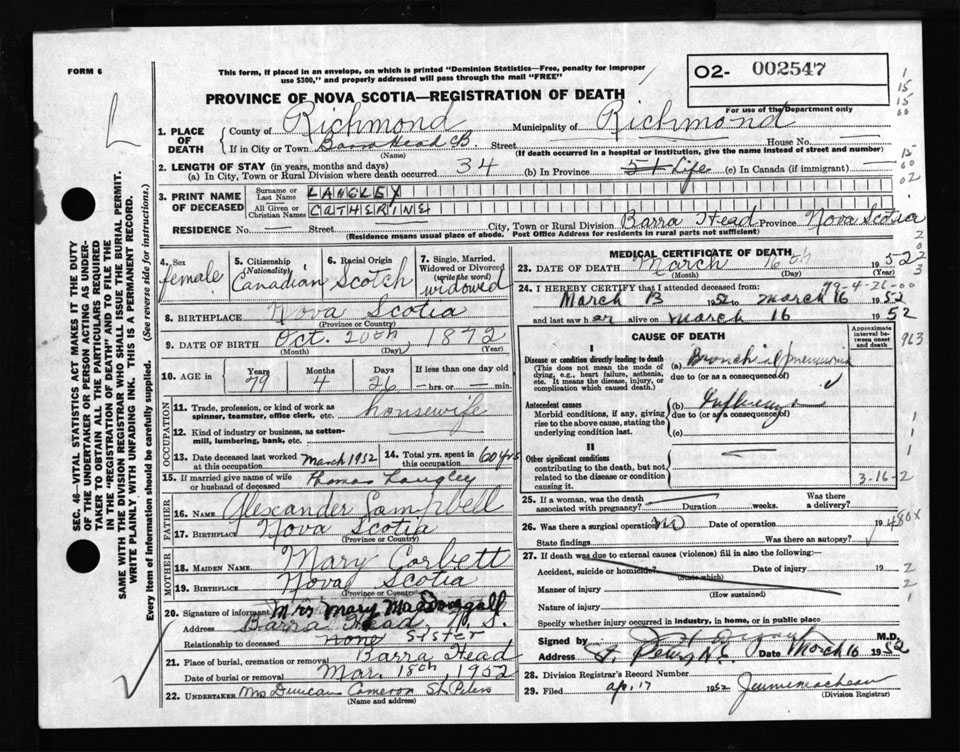 FORM 6
This form, if placed in an envelope, on which is printed "Dominion Statistics—Free, penalty for improper
use $300," and properly addressed will pass through the mail "FREE"
O2- 002547
For use of the Department only
PROVINCE OF NOVA SCOTIA—REGISTRATION OF DEATH
1. PLACE OF DEATH
County of Richmond Municipality of Richmond
If in City or Town Barra Head C.B. Street House No.
(Name) (If death occurred in a hospital or institution, give the name instead of street and number)
2. LENGTH OF STAY (in years, months and days)
(a) In City, Town or Rural Division where death occurred 34 (b) In Province 54 Life (c) In Canada (if immigrant)
3. PRINT NAME OF DECEASED
Surname or Last Name LANGLEY
All Given or Christian Names CATHERINE
RESIDENCE No. — Street City, Town or Rural Division Barra Head Province Nova Scotia
(Residence means usual place of abode. Post Office Address for residents in rural parts not sufficient)
4. Sex female
5. Citizenship (Nationality) Canadian
6. Racial Origin Scotch
7. Single, Married, Widowed or Divorced (write the word) widowed
8. BIRTHPLACE Nova Scotia
(Province or Country)
9. DATE OF BIRTH Oct. 20th 1872
(Month) (Day) (Year)
10. AGE in Years 79 Months 4 Days 26 If less than one day old — hrs. or — min.
OCCUPATION
11. Trade, profession or kind of work as spinner, teamster, office clerk, etc. housewife
12. Kind of industry or business, as cotton-mill, lumbering, bank, etc.
13. Date deceased last worked at this occupation March 1952
14. Total yrs. spent in this occupation 60 yrs
15. If married give name of wife or husband of deceased Thomas Langley
FATHER
16. NAME Alexander Campbell
17. BIRTHPLACE Nova Scotia
(Province or Country)
MOTHER
18. MAIDEN NAME Mary Corbett
19. BIRTHPLACE Nova Scotia
(Province or Country)
20. Signature of informant Mrs Mary MacDougall
Address Barra Head, N.S.
Relationship to deceased none Sister
21. Place of burial, cremation or removal Barra Head
Date of burial or removal Mar. 18th, 1952
22. UNDERTAKER Mrs Duncan Cameron St. Peters
(Name and address)
MEDICAL CERTIFICATE OF DEATH
23. DATE OF DEATH March 16th 1952
(Month) (Day) (Year)
79-4-26-00
24. I HEREBY CERTIFY that I attended deceased from:
March 13 1952 to March 16 1952
and last saw her alive on March 16 1952
CAUSE OF DEATH
Approximate interval between onset and death
963
I
Disease or condition directly leading to death
(This does not mean the mode of dying, e.g., heart failure, asthenia, etc. It means the disease, injury, or complication which caused death.)
(a) Bronchial pneumonia
due to (or as a consequence of)
Antecedent causes
Morbid conditions, if any, giving rise to the above cause, stating the underlying condition last.
(b) Influenza
due to (or as a consequence of)
(c)
II
Other significant conditions
contributing to the death, but not related to the disease or condition causing it.
3-16-2
25. If a woman, was the death associated with pregnancy? Duration weeks. Was there a delivery?
26. Was there a surgical operation? no Date of operation 19
480X
State findings Was there an autopsy?
27. If death was due to external causes (violence) fill in also the following:—
Accident, suicide or homicide? Date of injury 19
(State which)
Manner of injury
(How sustained)
Nature of injury
Specify whether injury occurred in industry, in home, or in public place
Signed by M.D.
Address St. Peters, N.S. Date March 16 1952
28. Division Registrar's Record Number
29. Filed apr. 17 1952
(Division Registrar)
SEC. 46—VITAL STATISTICS ACT MAKES IT THE DUTY
OF THE UNDERTAKER OR PERSON ACTING AS UNDER-
TAKER TO OBTAIN ALL THE PARTICULARS REQUIRED
IN THE "REGISTRATION OF DEATH" AND TO FILE THE
SAME WITH THE DIVISION REGISTRAR WHO SHALL ISSUE THE BURIAL PERMIT.
WRITE PLAINLY WITH UNFADING INK. THIS IS A PERMANENT RECORD.
Every item of information should be carefully supplied. (See reverse side for instructions.)